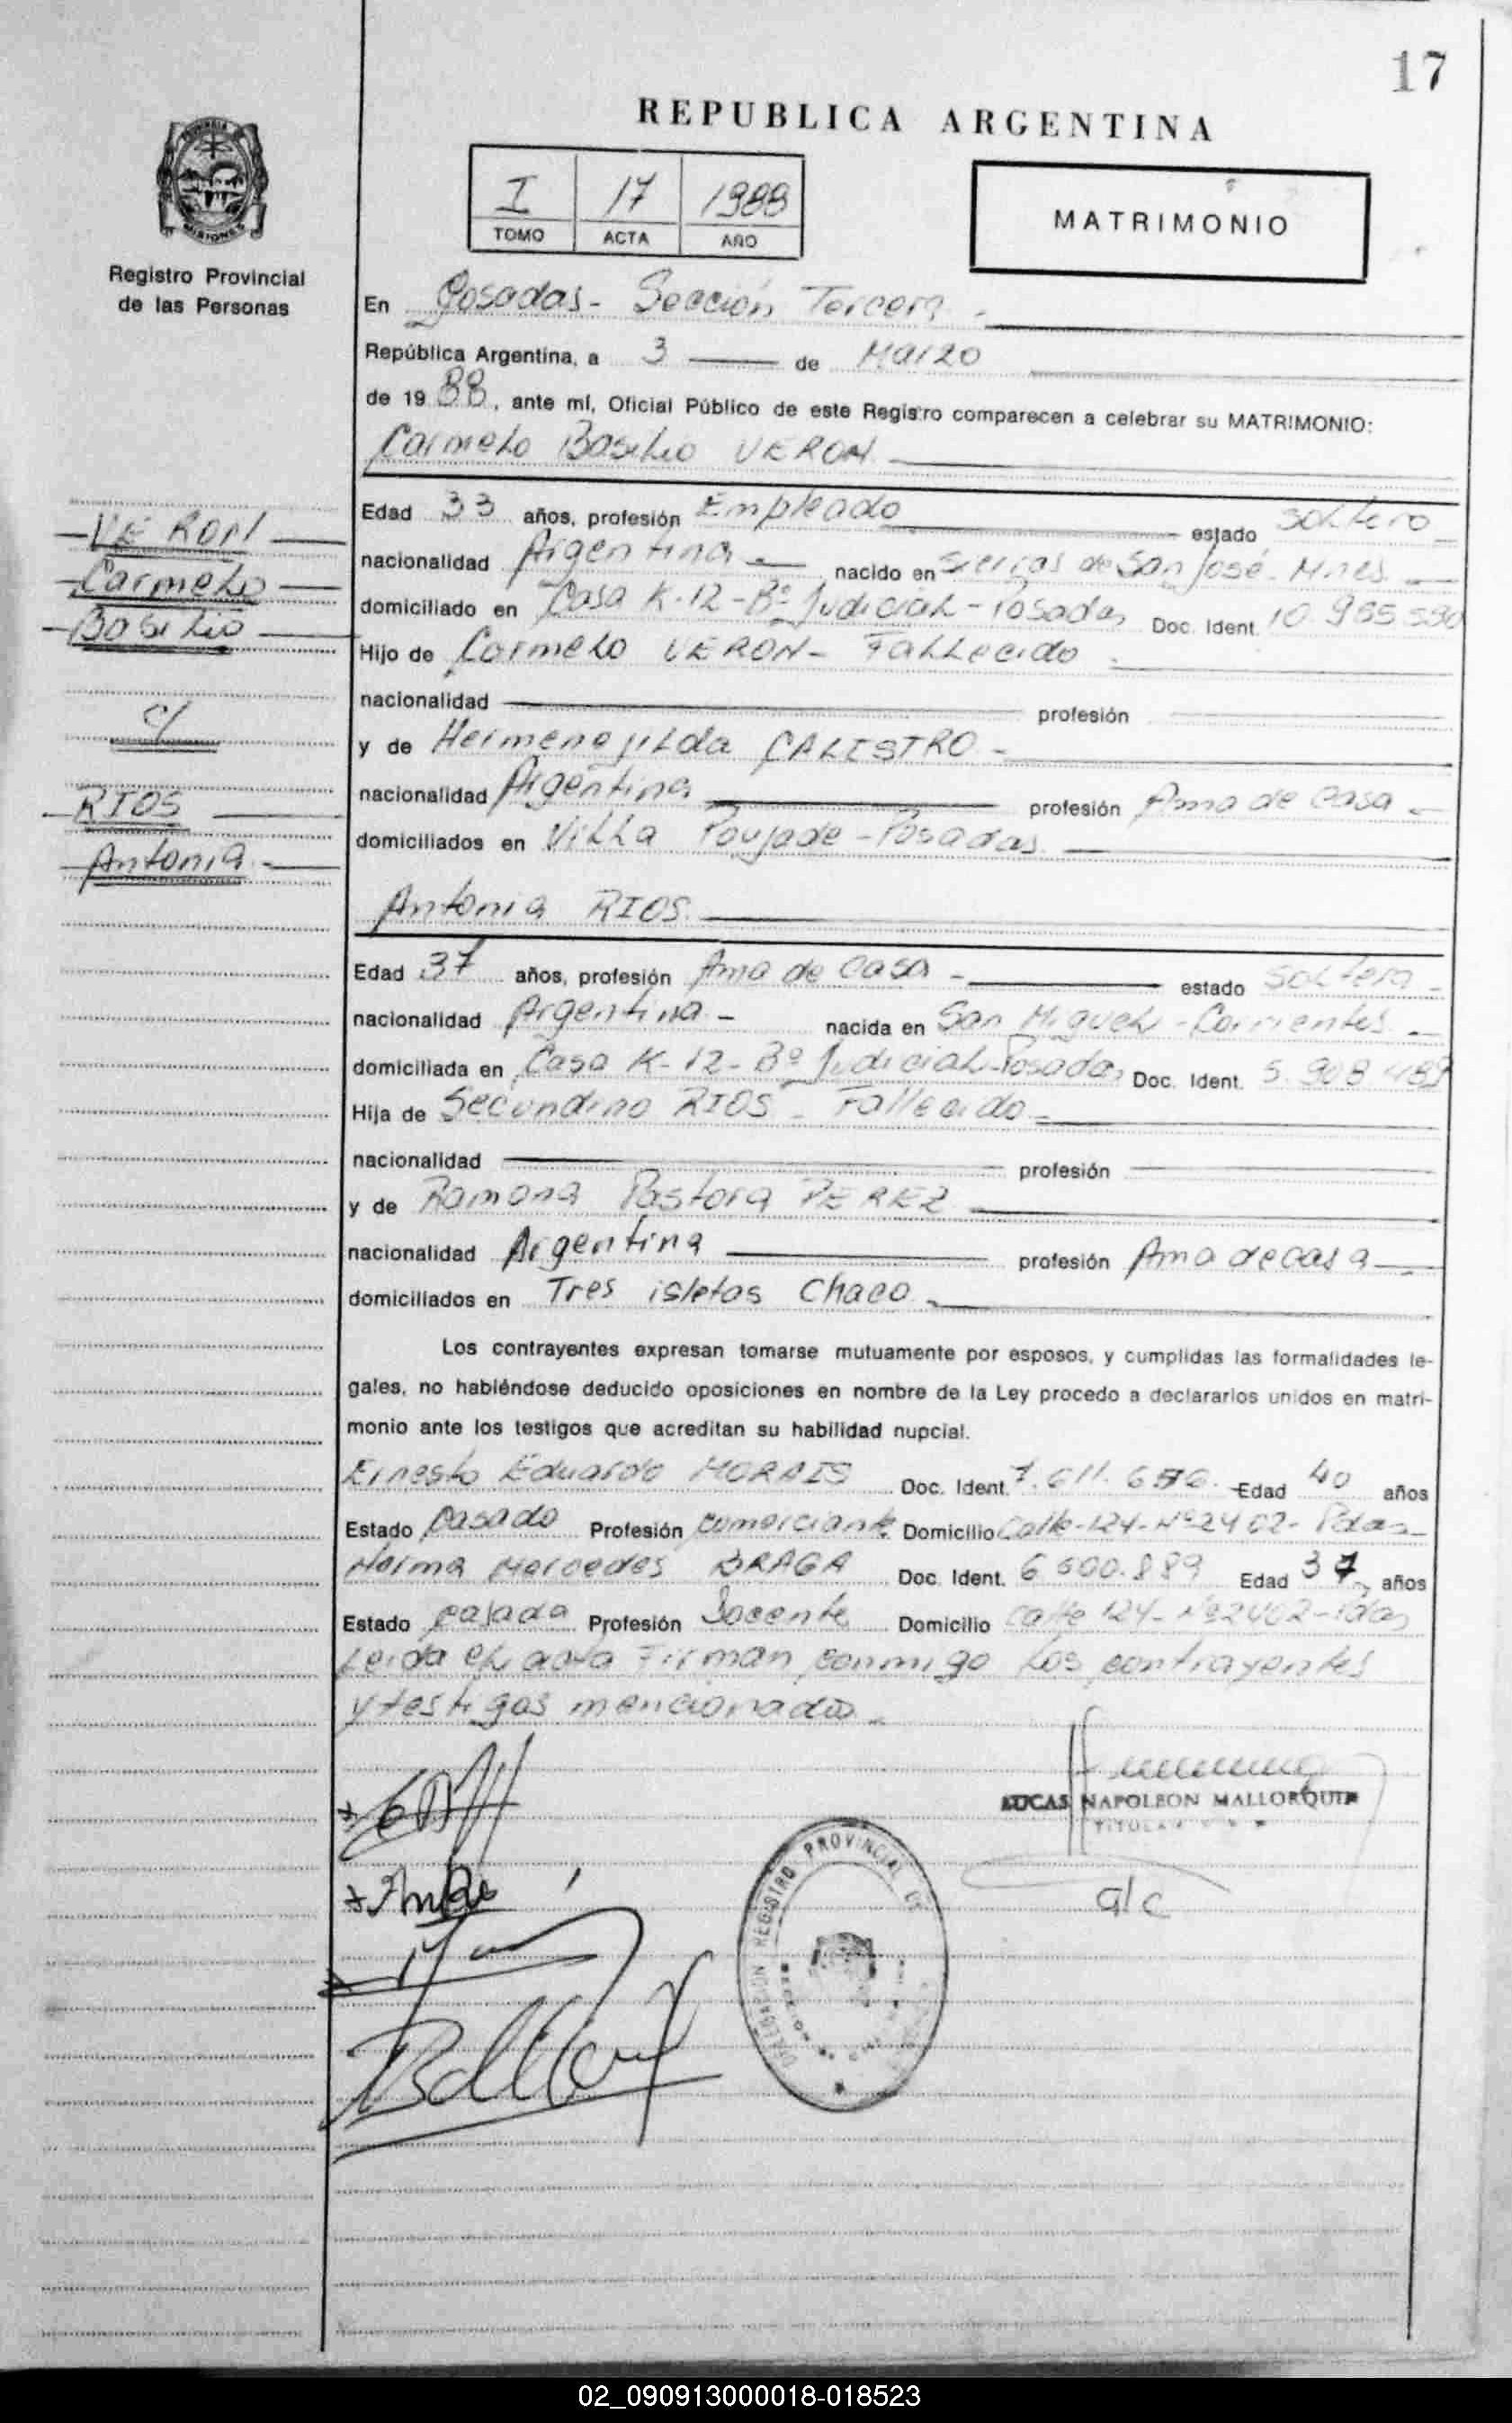 17
REPUBLICA ARGENTINA
I 17 1988
TOMO ACTA AÑO
MATRIMONIO
Registro Provincial
de las Personas
En Posadas - Sección Tercera -
República Argentina, a 3 de Marzo
de 19 88, ante mí, Oficial Público de este Registro comparecen a celebrar su MATRIMONIO:
Carmelo Basilio VERON
VERON
Carmelo
Basilio
c/
RIOS
Antonia
Edad 33 años, profesión Empleado estado soltero
nacionalidad Argentina nacido en sierras de San José - Mnes.
domiciliado en Casa K-12-Bº Judicial-Posadas Doc. Ident. 10.955.590
Hijo de Carmelo VERON - Fallecido
nacionalidad profesión
y de Hermenejilda CALISTRO -
nacionalidad Argentina profesión Ama de casa -
domiciliados en Villa Poujade - Posadas
Antonia RIOS
Edad 37 años, profesión Ama de casa - estado soltera -
nacionalidad Argentina - nacida en San Miguel - Corrientes
domiciliada en Casa K-12-Bº Judicial-Posadas Doc. Ident. 5.908.489
Hija de Secundino RIOS - Fallecido
nacionalidad profesión
y de Ramona Pastora PEREZ
nacionalidad Argentina profesión Ama de casa
domiciliados en Tres isletas Chaco
Los contrayentes expresan tomarse mutuamente por esposos, y cumplidas las formalidades le-
gales, no habiéndose deducido oposiciones en nombre de la Ley procedo a declararlos unidos en matri-
monio ante los testigos que acreditan su habilidad nupcial.
Ernesto Eduardo MORAIS Doc. Ident. Edad 40 años
Estado casado Profesión comerciante Domicilio Calle-124-Nº2402- Pdas
Norma Mercedes BRAGA Doc. Ident. 6.500.889 Edad 37 años
Estado casada Profesión Docente Domicilio Calle 124-Nº2402-Pdas
Leida el acta Firman conmigo los contrayentes
y testigos mencionados
LUCAS NAPOLEON MALLORQUIN
TITULAR
a/c
DELEGACION REGISTRO PROVINCIAL DE
02_090913000018-018523